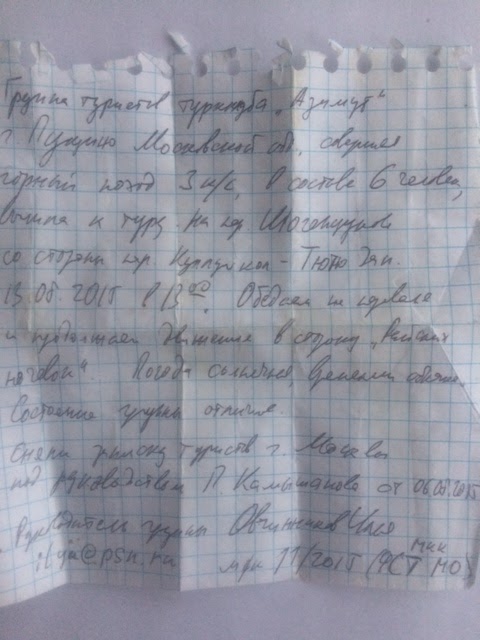 Группа туристов турклуба „Азимут“
г. Пущино Московской обл., совершая
горный поход 3 к/с, в составе 6 человек,
вышла к туру на пер. Шогенцукова
со стороны пер.
13.08.2015 в 13⁰⁰. Обедаем на перевале
и продолжаем движение в сторону „Райских
ночёвок“. Погода солнечная,
Состояние группы отличное.
Сняли записку туристов г. Москвы
под руководством П. Камышанова от 06.08.2015
Руководитель группы Овчинников Илья
ilya@psn.ru м/к 11/2015 (ФСТ МО) мкк